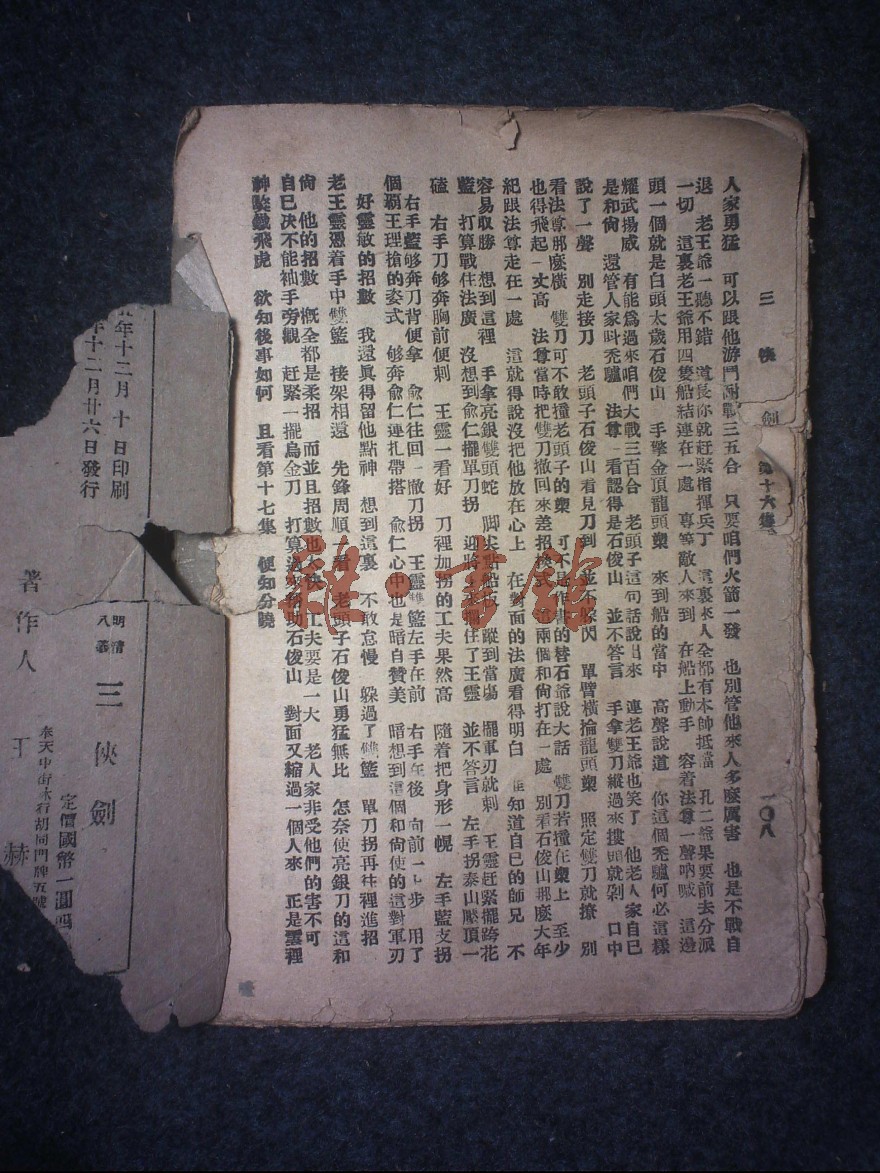 三俠劍 第十六集 一〇八
人家勇猛 可以跟他游鬥耐戰三五合 只要咱們火箭一發 也別管他來人多麽厲害 也是不戰自
退 老王爺一聽不錯 道長你就赶緊指揮兵丁 這裏來人全都有本帥抵擋 孔二爺果要前去分派
一切 這裏老王爺用四隻船結連在一處 專等敵人來到 在船上動手 容着法尊一聲吶喊 這邊
頭一個就是白頭太歲石俊山 手擎金頂龍頭槊 來到船的當中 高聲說道 你這個禿驢何必這樣
耀武揚威 有能爲過來咱們大戰三百合 老頭子這句話說出來 連老王爺也笑了 他老人家自己
是和尙 還管人家呌禿驢 法尊一看認得是石俊山 並不答言 手拿雙刀縱過來摟頭就剁 口中
說了一聲 別走接刀 老頭子石俊山看見刀到 並不躲閃 單臂橫掄龍頭槊 照定雙刀就撩 別
看法尊那麽橫 雙刀可不敢撞老頭子的槊 可不是作書的替石爺說大話 雙刀若撞在槊上 至少
也得飛起一丈高 法尊當時把雙刀撤回來差招換式 這兩個和尙打在一處 別看石俊山那麽大年
紀跟法尊走在一處 這就得說沒把他放在心上 在對面的法廣看得明白 知道自己的師兄 不
容易取勝 想到這裡 手拿亮銀雙頭蛇 脚尖點船板 蹤到當塲 擺軍刃就刺 王靈赶緊擺跨花
籃 打算戰住法廣 沒想到兪仁擺單刀拐 迎將 來 住了王靈 並不答言 左手拐泰山壓頂一
磕 右手刀够奔胸前便刺 王靈一看好 刀裡加拐的工夫果然高 隨着把身形一幌 左手籃支拐
右手籃够奔刀背便拿 兪仁往回一撤刀拐 王靈雙籃左手在前 右手在後 向前一上步 用了
個霸王理搶的姿式 够奔兪仁連扎帶搭 兪仁心中也是暗自贊美 暗想到這個和尙使的這對軍刃
好靈敏的招數 我還眞得留他點神 想到這裏 不敢怠慢 躲過了雙籃 單刀拐再往裡進招
老王靈憑着手中雙籃 接架相還 先鋒周順一看 老頭子石俊山勇猛無比 怎奈使亮銀刀的這和
尙 他的招數 槪全都是柔招 而並且招數也太快 工夫要是一大 老人家非受他們的害不可
自已决不能袖手旁觀 赶緊一擺烏金刀 打算過來帮助石俊山 對面又縮過一個人來 正是雲裡
神 鐵飛虎 欲知後事如何 且看第十七集 便知分曉
年十二月十日印刷
年十二月廿六日發行
著作人 王
明清八義 三俠劍
定價國幣一圓四
胡同門牌五號
書館